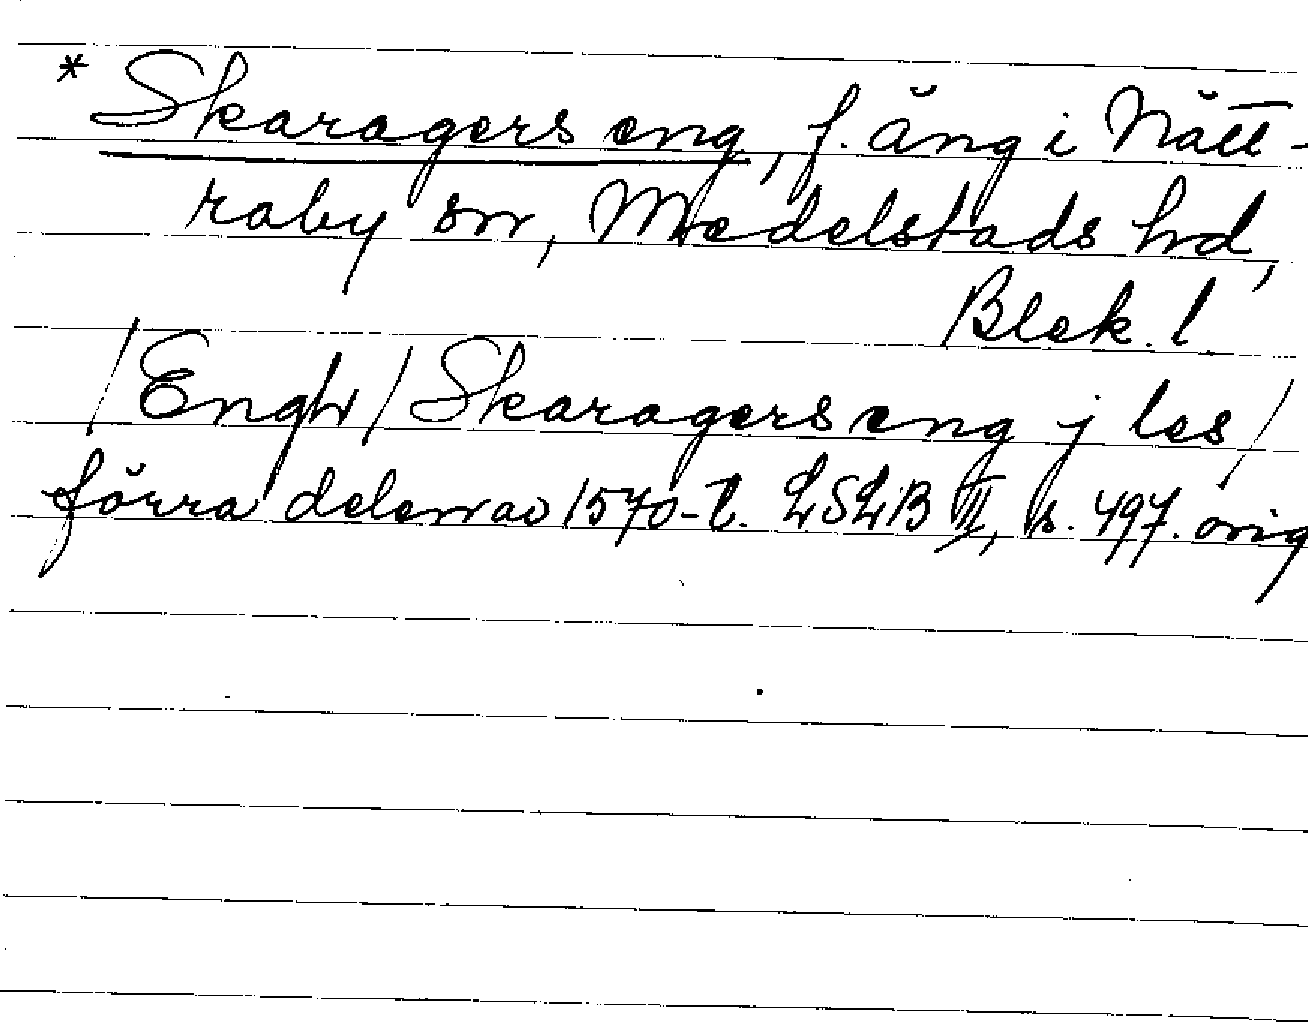 * Skaragers eng, f. äng i Nätt-
raby sn, Medelstads hd,
Blek. l.
/Engh/ Skaragers eng j les/
förra delen av 1570-t. LSLB III, s. 497. orig